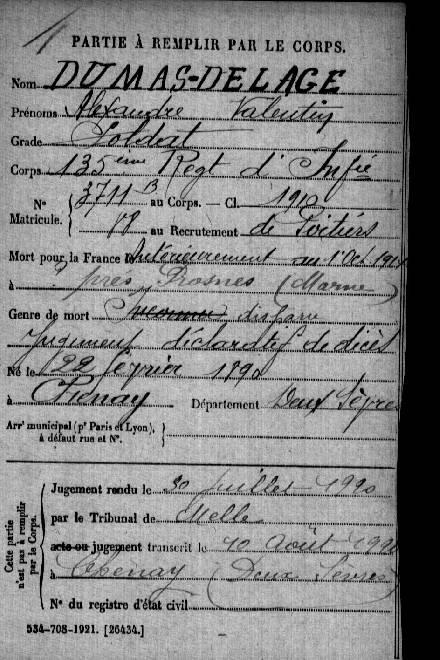 PARTIE À REMPLIR PAR LE CORPS.
Nom DUMAS-DELAGE
Prénoms Alexandre Valentin
Grade Soldat
Corps 135ème Regt d'Infie
Nº Matricule. 3711 B au Corps. — Cl. 1910
au Recrutement de Poitiers
Mort pour la France Antérieurement au 1 Oct. 1914
à près Prosnes (Marne)
Genre de mort Inconnu disparu
Jugement déclaratif de décès
Né le 22 février 1890
à Département Deux Sèvres
Arrt municipal (pr Paris et Lyon), à défaut rue et Nº.
Cette partie n'est pas à remplir par le Corps.
Jugement rendu le 30 Juillet 1920
par le Tribunal de Melle
acte ou jugement transcrit le 10 Août 1920
à Chenay (Deux Sèvres)
Nº du registre d'état civil
534-708-1921. [26434.]